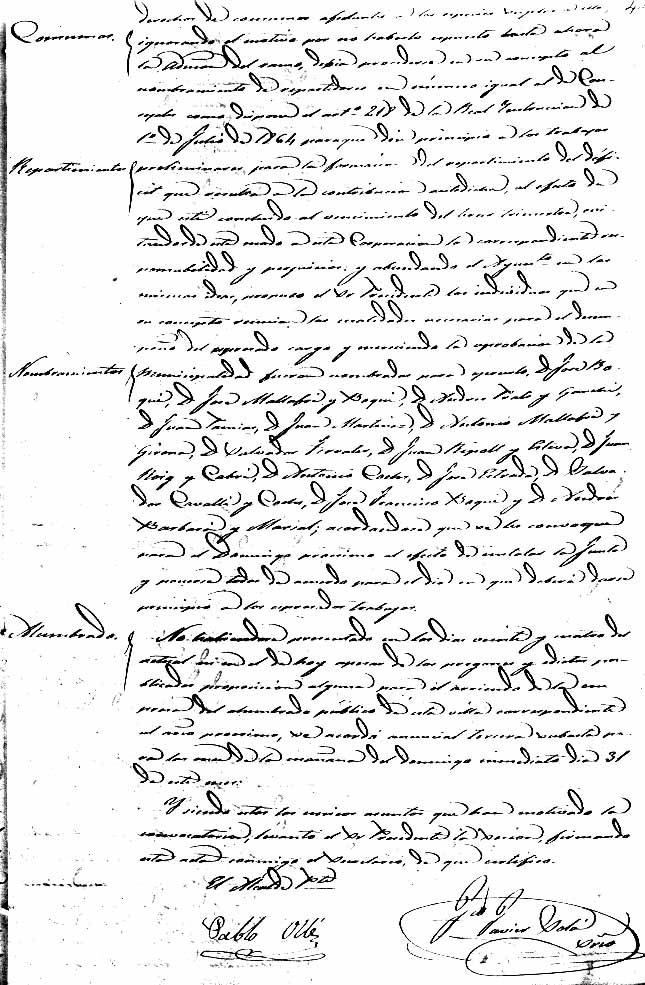 derechos de consumos
Consumos. ignorando el motivo por no haberlo expuesto hasta ahora
la Admon. del ramo, debia procederse en su concepto al
nombramiento de repartidores en número igual al de Con-
cejales como dispone el artº. 218 de la Real Instruccion de
1º. de Julio de 1864 para que dén principio a los trabajos
Repartimiento preliminares para la formacion del repartimiento del défi-
cit que resulta en la contribucion antedicha, al efecto de
que esté concluido al vencimiento del trimestre, evi-
tandose de este modo a esta Corporacion la correspondiente res-
ponsabilidad y perjuicios: y abundando el Ayuntº. en las
mismas ideas, propuso el Sr. Presidente los individuos que en
su concepto reunian las cualidades necesarias para el desem-
peño del espresado cargo y mereciendo la aprobacion de la
Nombramientos Municipalidad fueron nombrados para ejercerlo, D. José Bo-
qué, D. José Mallafré y Boqué, D.
D. Juan D. Juan Martinez, D. Antonio Mallafré y
Girona, D. Salvador D. Juan Ripoll y D. Juan
Roig y Cabré, D. Antonio Costa, D. José D. Salva-
dor Cavallé y Costa, D. José Francisco Boqué y D. Andres
Barbará y Marsal; acordandose que se les convoque
para el Domingo proximo al efecto de instalar la Junta
y ponerse todos de acuerdo para el dia en que deberá darse
principio a los espresados trabajos.
Alumbrado. No habiendose presentado en los dias veinte y cuatro del
actual ni en el de hoy apesar de los pregones y edictos pu-
blicados proposicion alguna para el arriendo de la em-
presa del alumbrado público de esta villa correspondiente
al año proximo, se acordó anunciar tercera subasta pa-
ra las once de la mañana del domingo inmediato dia 31
de este mes.
Y siendo estos los unicos asuntos que han motivado la
convocatoria, levantó el Sr. Presidente la sesion, firmando
esta acta conmigo el Secretario, de que certifico.
El Alcalde Pte.
Pablo Ollé
Javier Solá
Srio